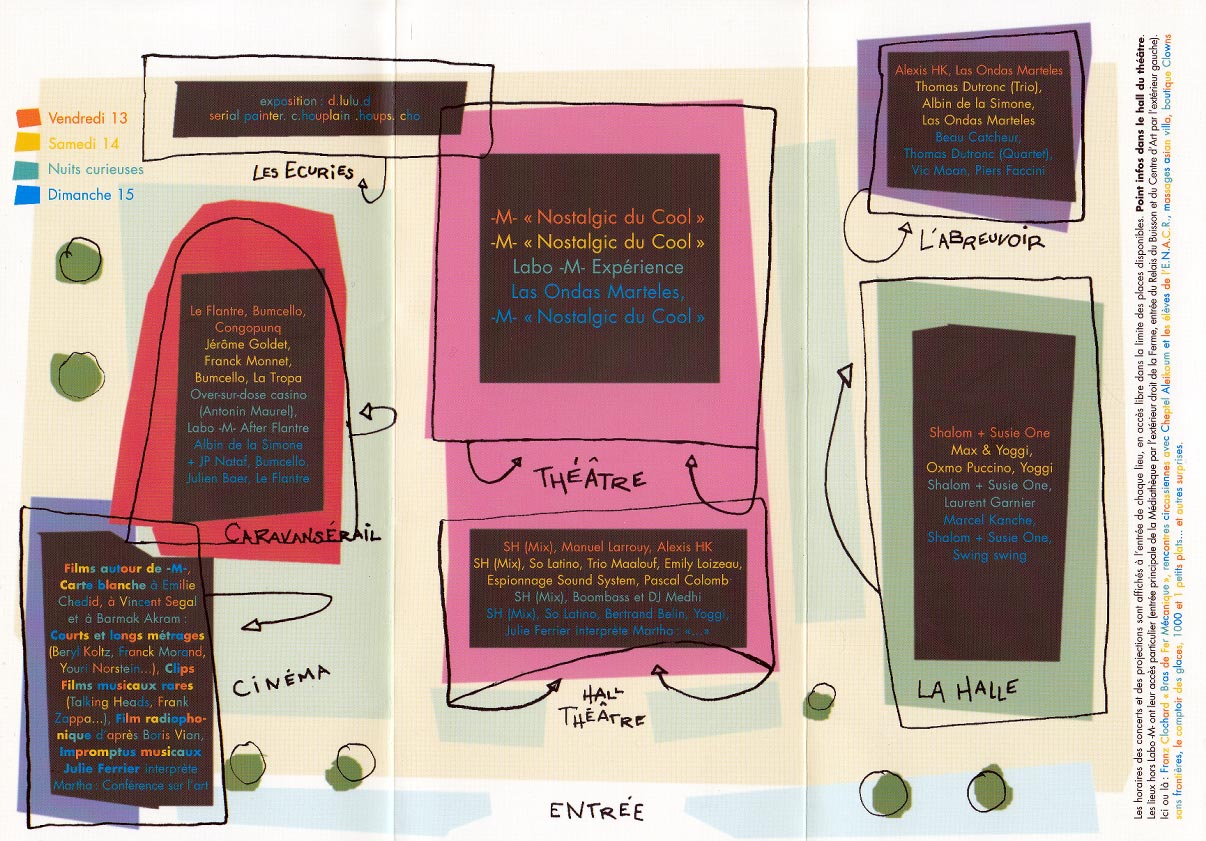 Vendredi 13
Samedi 14
Nuits curieuses
Dimanche 15
exposition : d.lulu.d
serial painter. c.houplain .houps. cho
LES ECURIES
Le Flantre, Bumcello,
Congopunq
Jérôme Goldet,
Franck Monnet,
Bumcello, La Tropa
Over-sur-dose casino
(Antonin Maurel),
Labo -M- After Flantre
Albin de la Simone
+ JP Nataf, Bumcello,
Julien Baer, Le Flantre
CARAVANSÉRAIL
Films autour de -M-,
Carte blanche à Emilie
Chedid, à Vincent Segal
et à Barmak Akram :
Courts et longs métrages
(Beryl Koltz, Franck Morand,
Youri Norstein...), Clips
Films musicaux rares
(Talking Heads, Frank
Zappa...), Film radiopho-
nique d'après Boris Vian,
Impromptus musicaux
Julie Ferrier interprète
Martha : Conférence sur l'art
CINÉMA
-M- « Nostalgic du Cool »
-M- « Nostalgic du Cool »
Labo -M- Expérience
Las Ondas Marteles,
-M- « Nostalgic du Cool »
THÉÂTRE
SH (Mix), Manuel Larrouy, Alexis HK
SH (Mix), So Latino, Trio Maalouf, Emily Loizeau,
Espionnage Sound System, Pascal Colomb
SH (Mix), Boombass et DJ Medhi
SH (Mix), So Latino, Bertrand Belin, Yoggi,
Julie Ferrier interprète Martha : «...»
HALL
THÉÂTRE
ENTRÉE
Alexis HK, Las Ondas Marteles
Thomas Dutronc (Trio),
Albin de la Simone,
Las Ondas Marteles
Beau Catcheur,
Thomas Dutronc (Quartet),
Vic Moan, Piers Faccini
L'ABREUVOIR
Shalom + Susie One
Max & Yoggi,
Oxmo Puccino, Yoggi
Shalom + Susie One,
Laurent Garnier
Marcel Kanche,
Shalom + Susie One,
Swing swing
LA HALLE
Les horaires des concerts et des projections sont affichés à l'entrée de chaque lieu, en accès libre dans la limite des places disponibles. Point infos dans le hall du théâtre.
Les lieux hors Labo -M- ont leur accès particulier (entrée principale de la Médiathèque par l'extérieur droit de la Ferme, entrée du Relais du Buisson et du Centre d'Art par l'extérieur gauche).
Ici ou là : Franz Clochard « Bras de Fer Mécanique », rencontres circassiennes avec Cheptel Aleikoum et les élèves de l'E.N.A.C.R., massages asian villa, boutique Clowns
sans frontières, le comptoir des glaces, 1000 et 1 petits plats... et autres surprises.